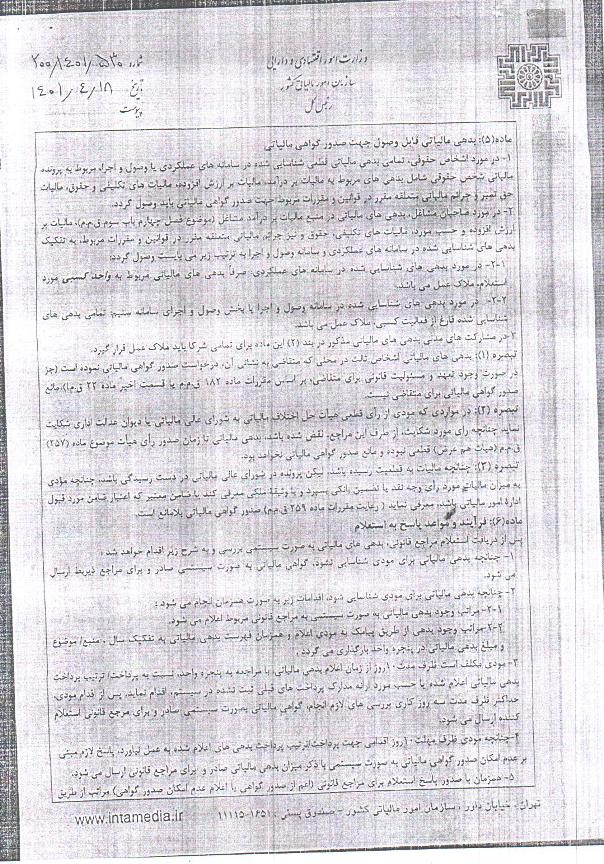 وزارت امور اقتصادی و دارایی
سازمان امور مالیاتی کشور
رئیس کل
شماره ۲۰۰/۱۴۰۱/۵۳۰
تاریخ ۱۴۰۱/۴/۱۸
پیوست
ماده(۵): بدهی مالیاتی قابل وصول جهت صدور گواهی مالیاتی
۱- در مورد اشخاص حقوقی، تمامی بدهی مالیاتی قطعی شناسایی شده در سامانه های عملکردی یا وصول و اجراء مربوط به پرونده
مالیاتی شخص حقوقی شامل بدهی های مربوط به مالیات بر درآمد، مالیات بر ارزش افزوده، مالیات های تکلیفی و حقوق، مالیات
حق تمبر و جرائم مالیاتی متعلقه مقرر در قوانین و مقررات مربوط جهت صدور گواهی مالیاتی باید وصول گردد.
۲- در مورد صاحبان مشاغل، بدهی های مالیاتی در منبع مالیات بر درآمد مشاغل (موضوع فصل چهارم باب سوم ق.م.م)، مالیات بر
ارزش افزوده و حسب مورد، مالیات های تکلیفی، حقوق و نیز جرائم مالیاتی متعلقه مقرر در قوانین و مقررات مربوط، به تفکیک
بدهی های شناسایی شده در سامانه های عملکردی و سامانه وصول و اجرا به ترتیب زیر می بایست وصول گردد:
۲-۱- در مورد بدهی های شناسایی شده در سامانه های عملکردی، صرفاً بدهی های مالیاتی مربوط به واحد کسبی مورد
استعلام، ملاک عمل می باشد.
۲-۲- در مورد بدهی های شناسایی شده در سامانه وصول و اجرا یا بخش وصول و اجرای سامانه سنیم، تمامی بدهی های
شناسایی شده فارغ از فعالیت کسبی، ملاک عمل می باشد.
۳-در مشارکت های مدنی بدهی های مالیاتی مذکور در بند (۲) این ماده برای تمامی شرکا باید ملاک عمل قرار گیرد.
تبصره (۱): بدهی های مالیاتی اشخاص ثالث در محلی که متقاضی به نشانی آن، درخواست صدور گواهی مالیاتی نموده است (جز
در صورت وجود تعهد و مسئولیت قانونی برای متقاضی، بر اساس مقررات ماده ۱۸۲ ق.م.م یا قسمت اخیر ماده ۲۲ ق.م)، مانع
صدور گواهی مالیاتی برای متقاضی نیست.
تبصره (۲): در مواردی که مودی از رأی قطعی هیأت حل اختلاف مالیاتی به شورای عالی مالیاتی یا دیوان عدالت اداری شکایت
نماید، چنانچه رأی مورد شکایت، از طرف این مراجع، نقض شده باشد، بدهی مالیاتی تا زمان صدور رأی هیأت موضوع ماده (۲۵۷)
ق.م.م (هیأت هم عرض) قطعی نبوده و مانع صدور گواهی مالیاتی نخواهد بود.
تبصره (۳): چنانچه مالیات به قطعیت رسیده باشد، لیکن پرونده در شورای عالی مالیاتی در دست رسیدگی باشد، چنانچه مؤدی
به میزان مالیات مورد رأی وجه نقد یا تضمین بانکی بسپرد و یا وثیقه ملکی معرفی کند یا ضامن معتبر که اعتبار ضامن مورد قبول
اداره امور مالیاتی باشد، معرفی نماید (رعایت مقررات ماده ۲۵۹ ق.م.م) صدور گواهی مالیاتی بلامانع است.
ماده(۶): فرآیند و قواعد پاسخ به استعلام
پس از دریافت استعلام مراجع قانونی، بدهی های مالیاتی به صورت سیستمی بررسی و به شرح زیر اقدام خواهد شد:
۱- چنانچه بدهی مالیاتی برای مودی شناسایی نشود، گواهی مالیاتی به صورت سیستمی صادر و برای مراجع ذیربط ارسال
می شود.
۲- چنانچه بدهی مالیاتی برای مودی شناسایی شود، اقدامات زیر به صورت همزمان انجام می شود:
۲-۱- مراتب وجود بدهی مالیاتی به صورت سیستمی به مراجع قانونی مربوط اعلام می شود.
۲-۲-مراتب وجود بدهی از طریق پیامک به مودی اعلام و همزمان فهرست بدهی مالیاتی به تفکیک سال ، منبع/ موضوع
و مبلغ بدهی مالیاتی در پنجره واحد بارگذاری می گردد.
۳- مودی مکلف است ظرف مدت ۱۰روز از زمان اعلام بدهی مالیاتی، با مراجعه به پنجره واحد، نسبت به پرداخت/ ترتیب پرداخت
بدهی مالیاتی اعلام شده یا حسب مورد ارائه مدارک پرداخت های قبلی ثبت نشده در سیستم، اقدام نماید. پس از اقدام مودی،
حداکثر ظرف مدت سه روز کاری بررسی های لازم انجام، گواهی مالیاتی بصورت سیستمی صادر و برای مرجع قانونی استعلام
کننده ارسال می شود.
۴-چنانچه مودی ظرف مهلت ۱۰روز اقدامی جهت پرداخت/ترتیب پرداخت بدهی های اعلام شده به عمل نیاورد، پاسخ لازم مبنی
بر عدم امکان صدور گواهی مالیاتی به صورت سیستمی با ذکر میزان بدهی مالیاتی صادر و برای مراجع قانونی ارسال می شود.
۵- همزمان با صدور پاسخ استعلام برای مراجع قانونی (اعم از صدور گواهی یا اعلام عدم امکان صدور گواهی) مراتب از طریق
تهران - خیابان داور - سازمان امور مالیاتی کشور - صندوق پستی ۱۶۵۱-۱۱۱۱۵
www.intamedia.ir